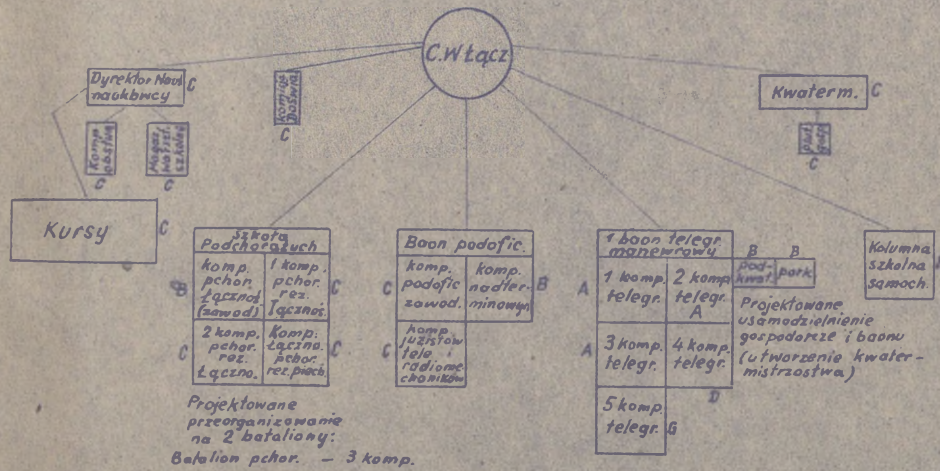 C.W Łącz
Dyrektor Nauk
naukowcy
C
Komp
obsługi
C
Magaz.
warszt.
szkolne
C
Komisja
Doświa
C
Kwaterm.
C
plut.
gosp
C
Kursy
C
Szkoła
Podchorążych
komp.
pchor.
Łącznoś.
(zawod)
B
1 komp.
pchor.
rez.
Łącznoś.
C
2 komp.
pchor.
rez.
Łączno.
C
Komp.
Łączno.
pchor.
rez. piech.
C
Projektowane
przeorganizowanie
na 2 bataliony:
Batalion pchor. – 3 komp.
Baon podofic.
komp.
podofic
zawod.
C
komp.
nadter-
minowych
B
komp
juzistów
tele i
radiome
chaników
C
1 baon telegr.
manewrowy
1 komp
telegr.
A
2 komp
telegr.
A
3 komp.
telegr.
A
4 komp.
telegr.
D
5 komp.
telegr.
G
B
B
pod-
kwat.
park
Projektowane
usamodzielnienie
gospodarcze i baonu
(utworzenie kwater-
mistrzostwa)
Kolumna
szkolna
samoch.